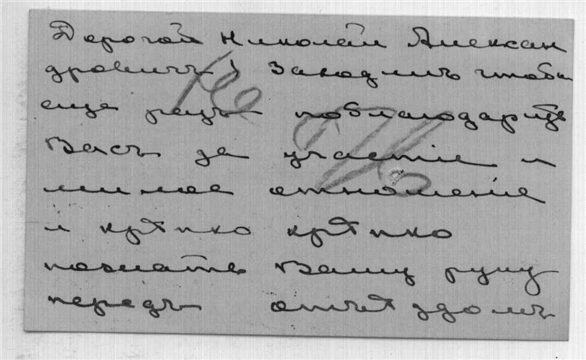 Дорогой Николай Алексан
дровичъ! Заходилъ чтобы
еще разъ поблагодарить
Васъ за участiе и
милое отношенiе
и крѣпко крѣпко
пожать Вашу руку
передъ отъѣздомъ